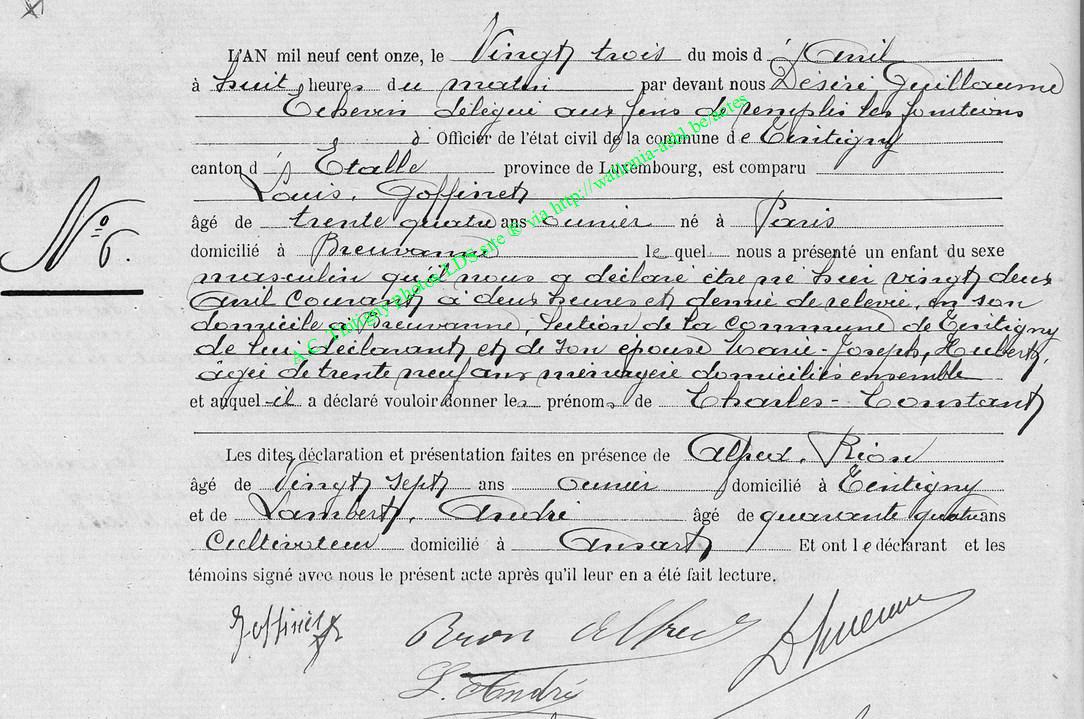 L'AN mil neuf cent onze, le Vingt trois du mois d'Avril
à huit heures du matin par devant nous Désiré Guillaume
Echevin délégué aux fins de remplir les fonctions
d'Officier de l'état civil de la commune de Tintigny
canton d'Etalle province de Luxembourg, est comparu
Louis, Goffinet
âgé de trente quatre ans ouvrier né à Paris
domicilié à Breuvanne lequel nous a présenté un enfant du sexe
N° 6.
masculin qu'il nous a déclaré être né hier vingt deux
Avril courant à deux heures et demie de relevée, en son
domicile à Breuvanne, Section de la commune de Tintigny
de lui déclarant et de son épouse Marie-Joseph, Hubert,
âgée de trente neuf ans ménagère domiciliés ensemble
et auquel il a déclaré vouloir donner les prénoms de Charles-Constant
Les dites déclaration et présentation faites en présence de Alfred, Rion
âgé de Vingt sept ans ouvrier domicilié à Tintigny
et de Lambert, André âgé de quarante quatre ans
Cultivateur domicilié à Ansart Et ont le déclarant et les
témoins signé avec nous le présent acte après qu'il leur en a été fait lecture.
Goffinet Rion Alfred
L. André
A.C. Tintigny photos LDS site ® via http://wallonia-asbl.be/actes